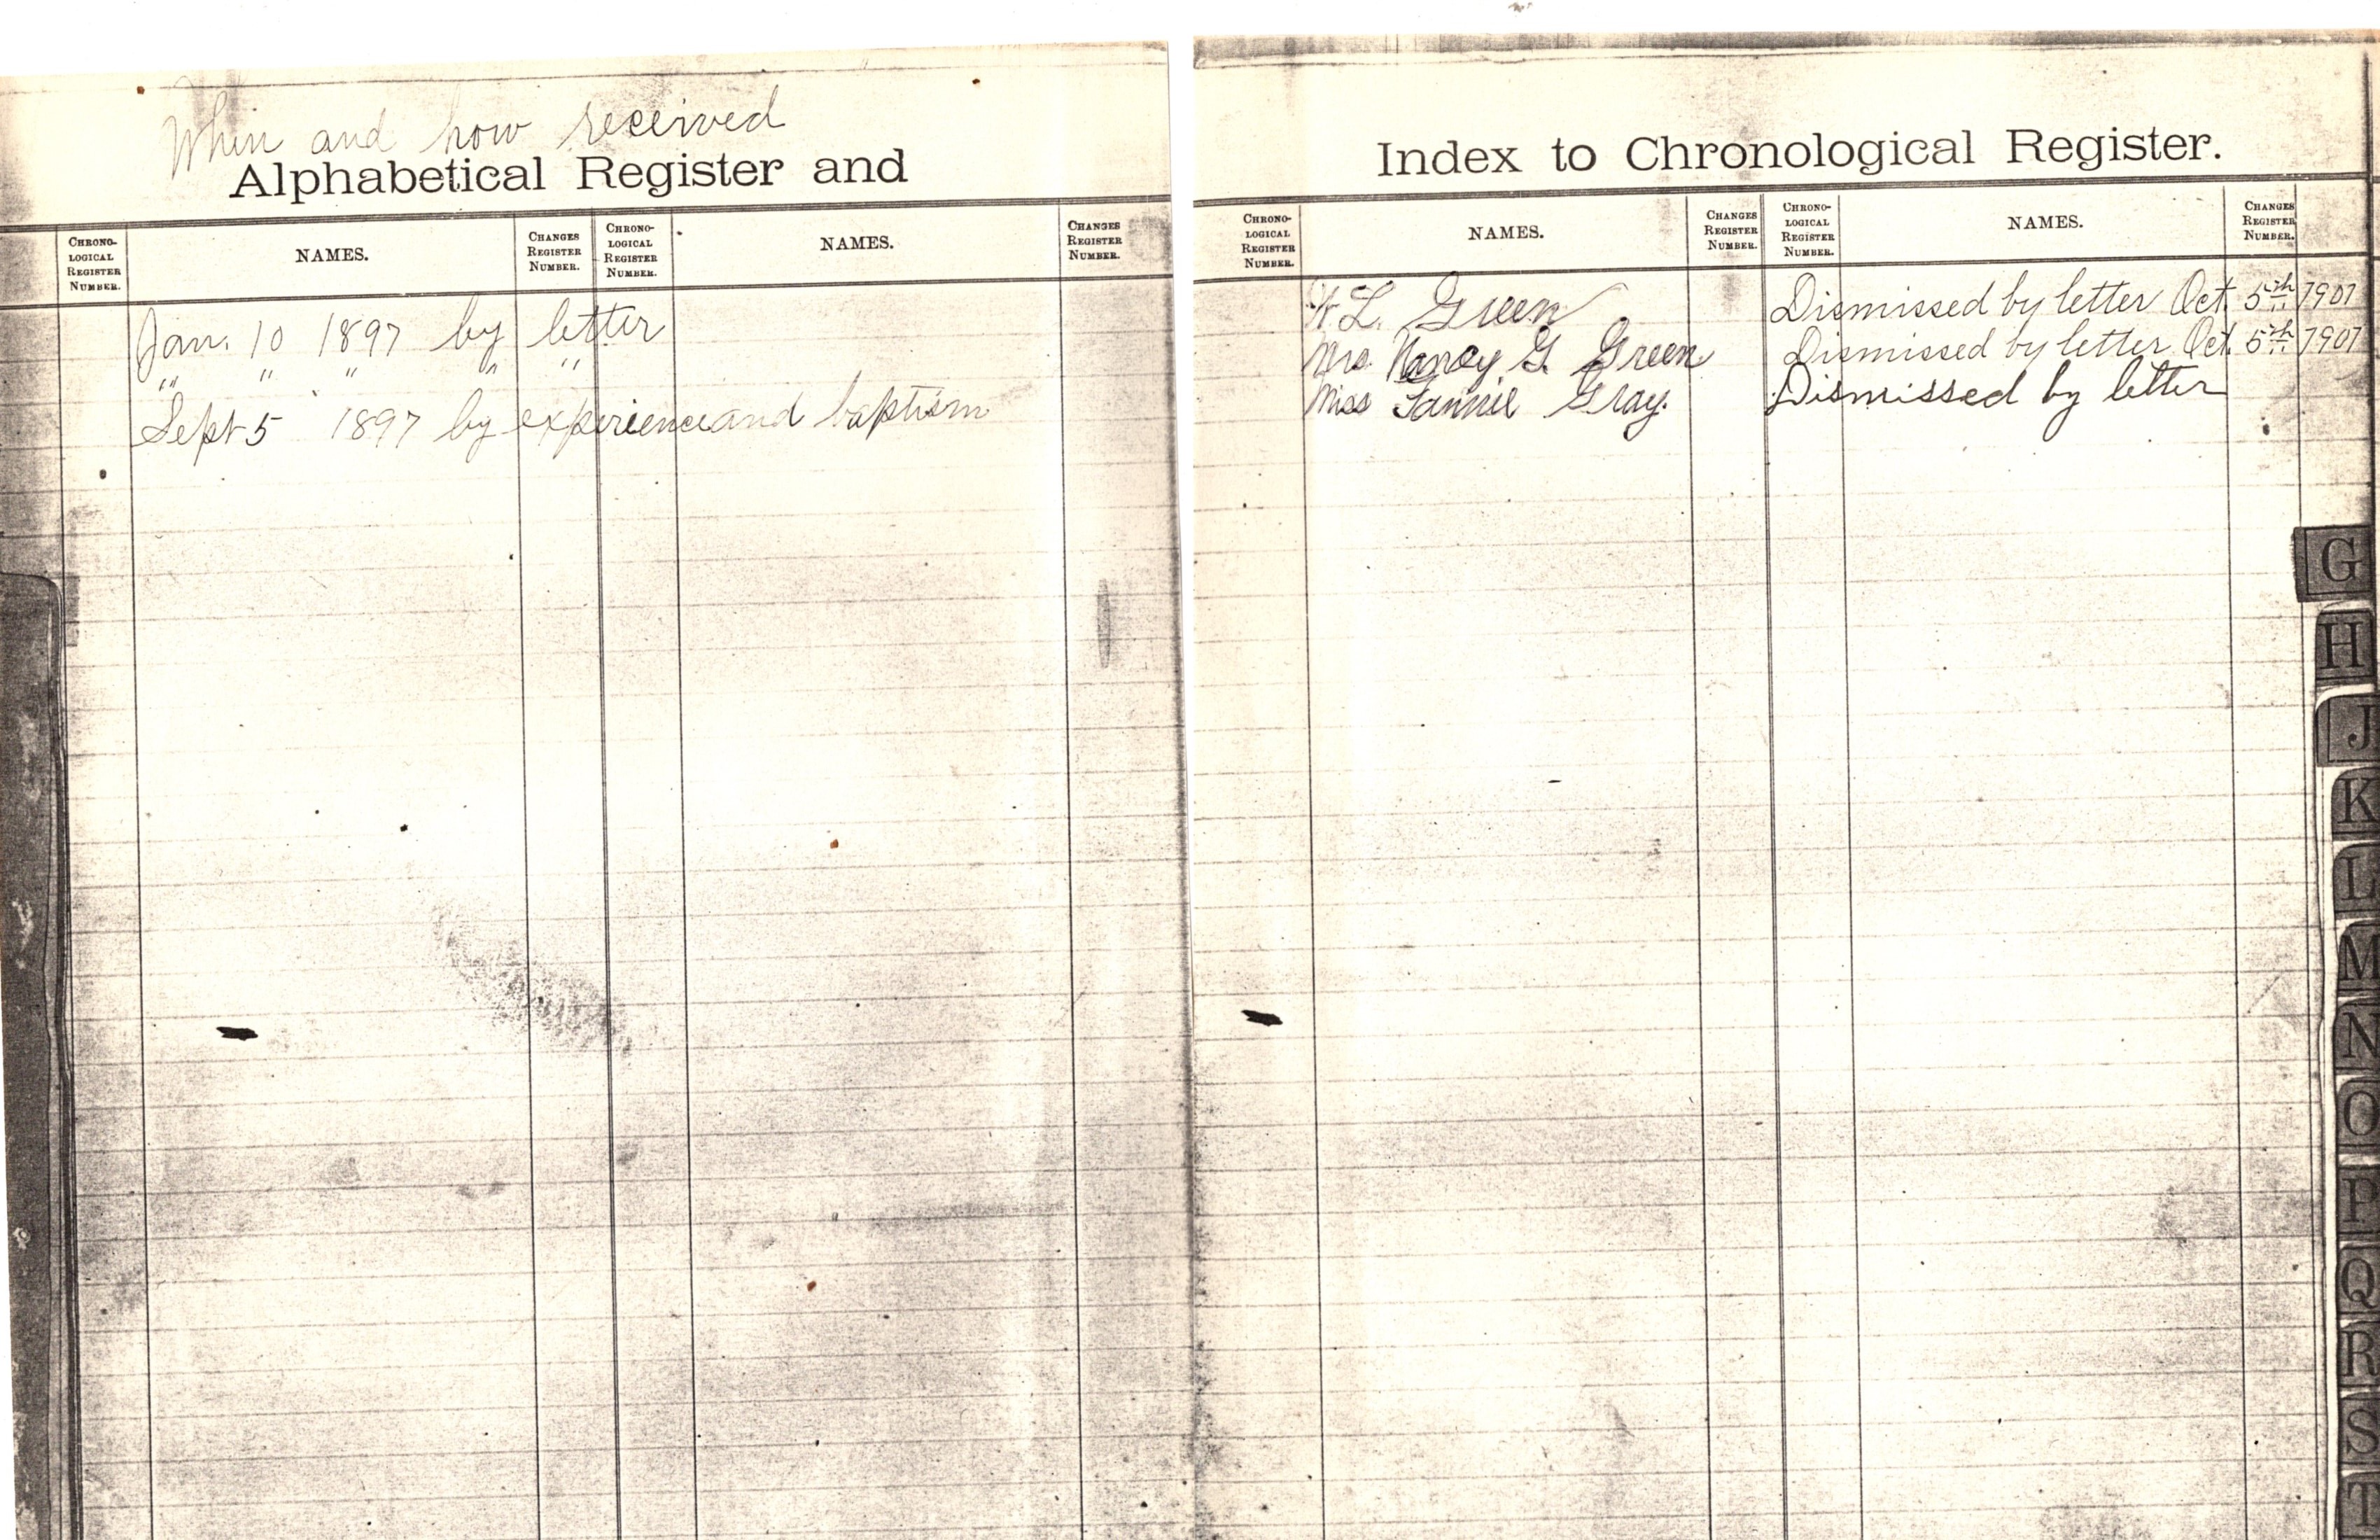 When and how received
Alphabetical Register and
CHRONO-
LOGICAL
REGISTER
NUMBER.
NAMES.
CHANGES
REGISTER
NUMBER.
CHRONO-
LOGICAL
REGISTER
NUMBER.
NAMES.
CHANGES
REGISTER
NUMBER.
Jan. 10 1897 by letter
" " " " "
Sept 5 1897 by experience and baptism
Index to Chronological Register.
CHRONO-
LOGICAL
REGISTER
NUMBER.
NAMES.
CHANGES
REGISTER
NUMBER.
CHRONO-
LOGICAL
REGISTER
NUMBER.
NAMES.
CHANGES
REGISTER
NUMBER.
L. Green Dismissed by letter Oct. 5th 1901
Mrs. Nancy G. Green Dismissed by letter Oct. 5th 1901
Miss Fannie Gray. Dismissed by letter
G
H
J
K
L
M
N
O
P
Q
R
S
T